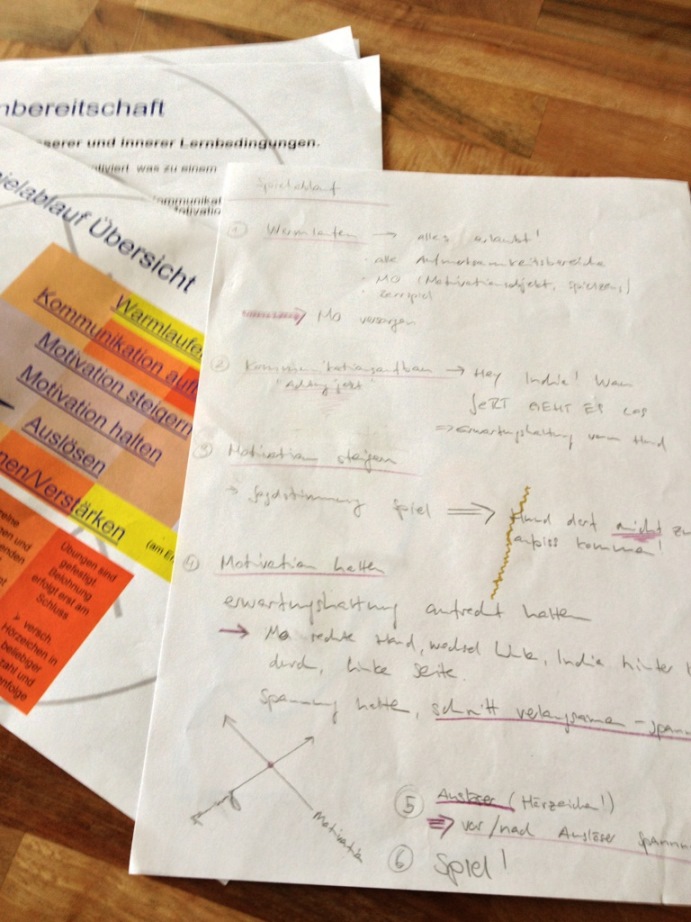 nbereitschaft
serer und innerer Lernbedingungen.
tiviert was zu einem
ommunikat
otivation
ielablauf Übersicht
Warmlaufe
Kommunikation auf
Motivation steigern
Motivation halten
Auslösen
nen/Verstärken
(am En
eine
en und
enden
Übungen sind
gefestigt.
Belohnung
erfolgt erst am
Schluss
➤ versch.
Hörzeichen in
beliebiger
zahl und
enfolge
Spielablauf
① Warmlaufen → alles erlaubt!
· alle Aufmerksamkeitsbereiche
· MO (Motivationsobjekt, Spielzeug)
zerrspiel
→ Mo versorgen
② Kommunikationsaufbau → Hey Indie! Wau
JETZT GEHT ES LOS
⇒ erwartungshaltung vom Hund
③ Motivation steigern
→ Jagdstimmung Spiel ⇒ Hund darf nicht zu
anpiss kommen!
④ Motivation halten
erwartungshaltung aufrecht halten
→ Mo rechte Hand, wechsel Link, Indie hinter
durch, linke Seite.
Spannung halten, schritt verlangsamen - spann
Motivation
⑤ Auslöser (Hörzeichen!)
⇒ vor/nach Auslöser Spannu
⑥ Spiel!